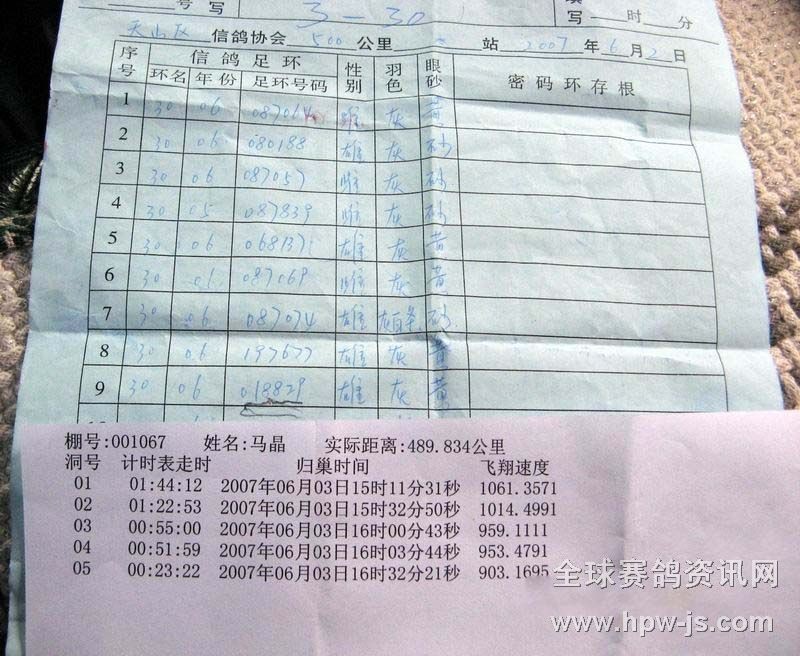 号 写 3-30 填写 一 时 分
天山区 信鸽协会 500 公里 站 2007 年 6 月 2 日
序号 信鸽足环 性别 羽色 眼砂 密码环存根
环名 年份 足环号码
1 30 06 灰 黄
2 30 06 080188 雄 灰 砂
3 30 06 087057 雌 灰 砂
4 30 05 087839 雌 灰 砂
5 30 06 雄 灰 黄
6 30 06 087069 雌 灰 黄
7 30 06 087074 雄 砂
8 30 06 197677 雄 灰 黄
9 30 06 018829 雄 灰 黄
棚号:001067 姓名:马晶 实际距离:489.834公里
洞号 计时表走时 归巢时间 飞翔速度
01 01:44:12 2007年06月03日15时11分31秒 1061.3571
02 01:22:53 2007年06月03日15时32分50秒 1014.4991
03 00:55:00 2007年06月03日16时00分43秒 959.1111
04 00:51:59 2007年06月03日16时03分44秒 953.4791
05 00:23:22 2007年06月03日16时32分21秒 903.1695
全球赛鸽资讯网
www.hpw-js.com